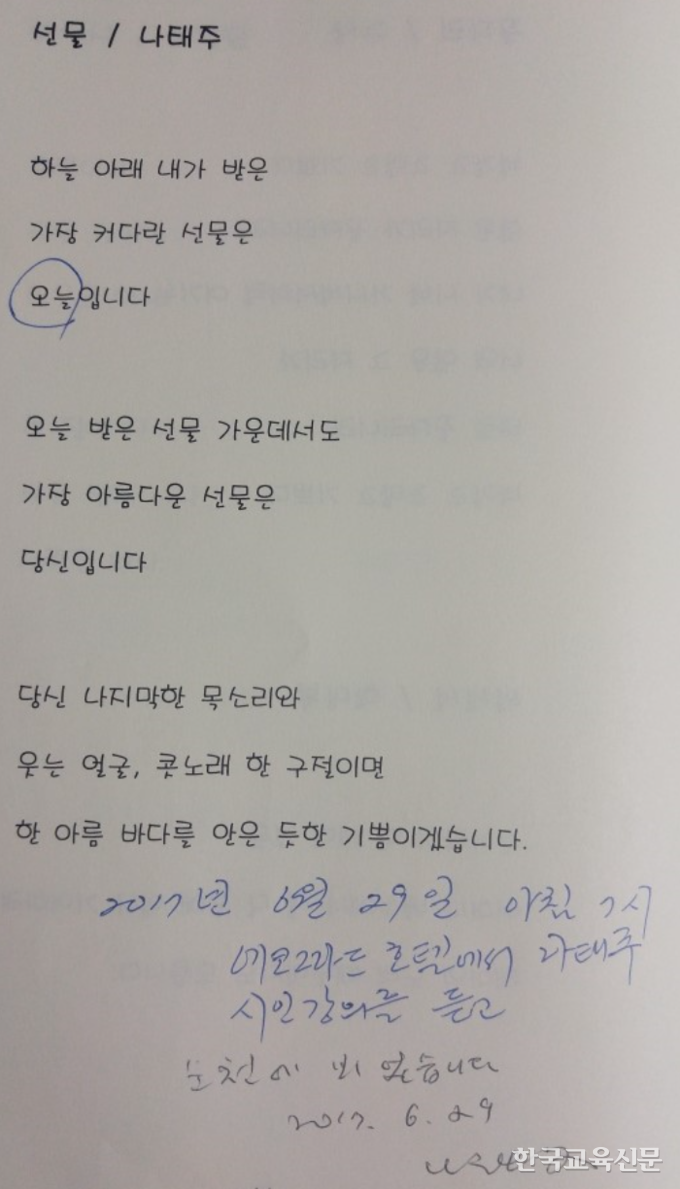 선물 / 나태주
하늘 아래 내가 받은
가장 커다란 선물은
오늘입니다
오늘 받은 선물 가운데서도
가장 아름다운 선물은
당신입니다
당신 나지막한 목소리와
웃는 얼굴, 콧노래 한 구절이면
한 아름 바다를 안은 듯한 기쁨이겠습니다.
2017년 6월 29일 아침 7시
에코그라드 호텔에서 나태주
시인강의를 듣고
순천에 비 없습니다
2017. 6. 29
한국교육신문